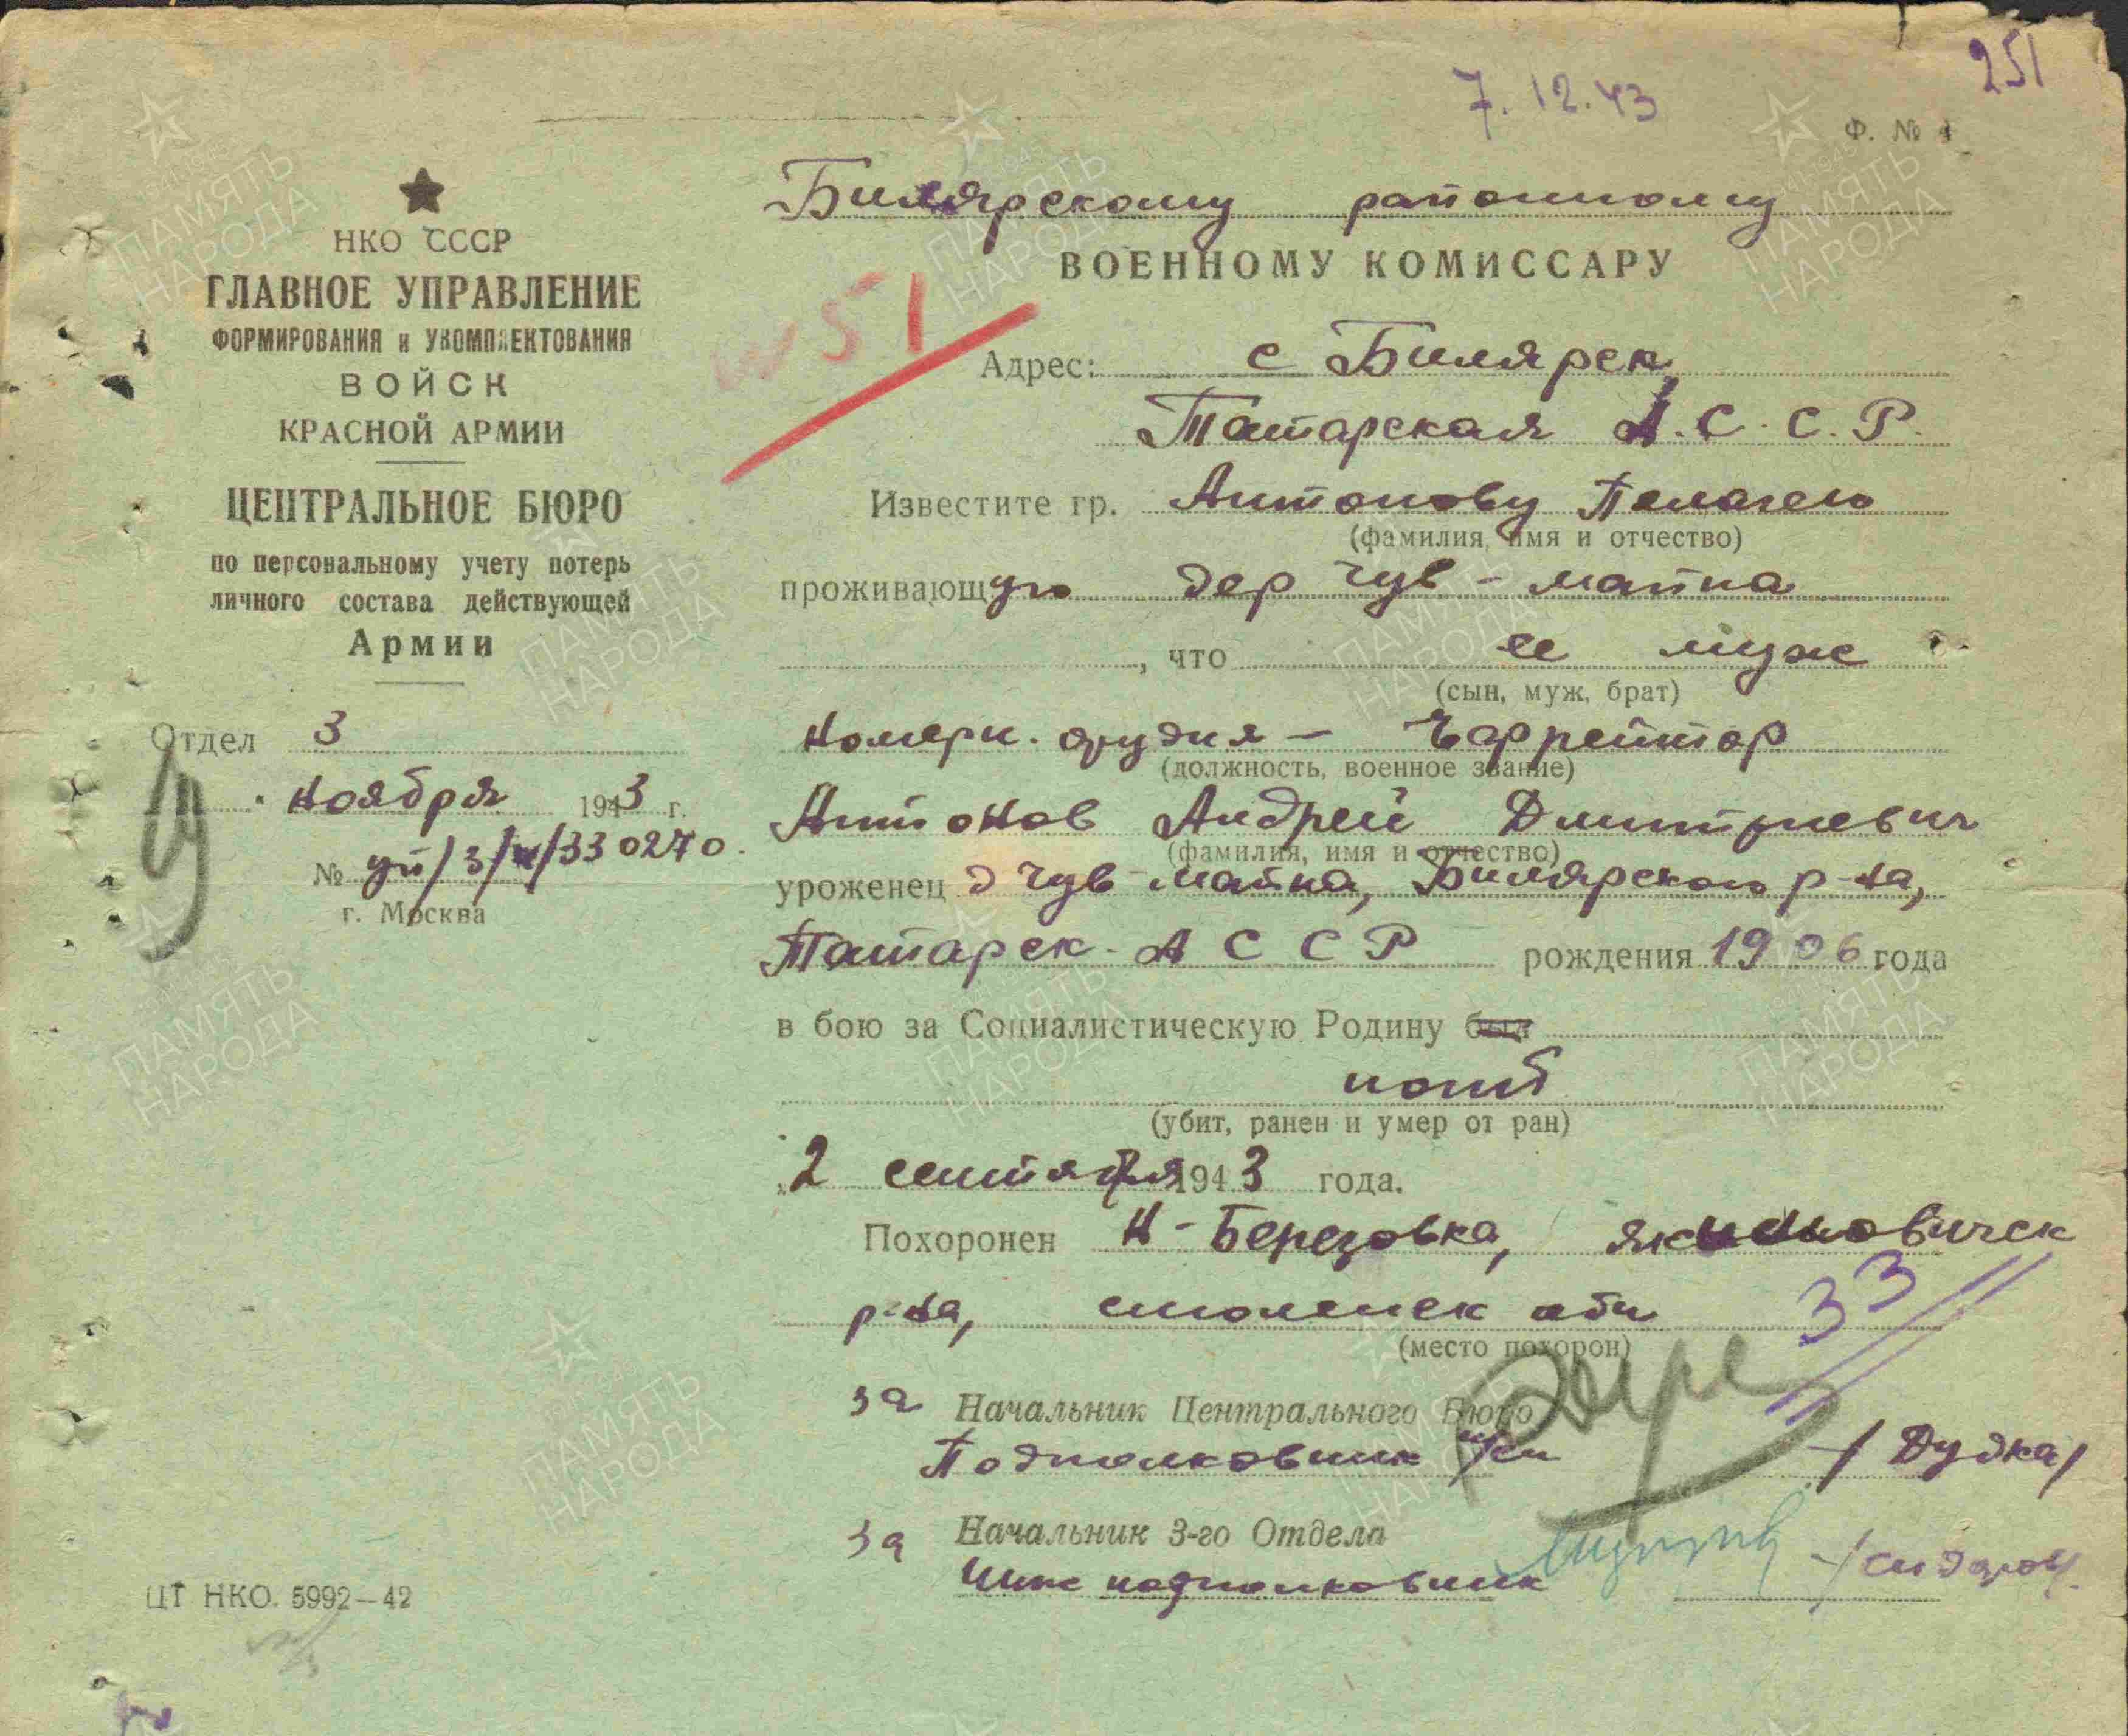 251
7.12.43
Ф. №
НКО СССР
ГЛАВНОЕ УПРАВЛЕНИЕ
ФОРМИРОВАНИЯ и УКОМПЛЕКТОВАНИЯ
ВОЙСК
КРАСНОЙ АРМИИ
ЦЕНТРАЛЬНОЕ БЮРО
по персональному учету потерь
личного состава действующей
Армии
Отдел 3
" ноября 1943 г.
№ уп/3/ /330270.
г. Москва
Билярскому районному
ВОЕННОМУ КОМИССАРУ
51
Адрес: с Билярск
Татарская А.С.С.Р.
Известите гр. Антонову Пелагею
(фамилия, имя и отчество)
проживающую дер Чув-майна
, что ее муж
(сын, муж, брат)
номерн. орудия — Ефрейтор
(должность, военное звание)
Антонов Андрей Дмитриевич
(фамилия, имя и отчество)
уроженец д Чув-майна, Билярского р-на,
Татарск. АССР рождения 1906 года
в бою за Социалистическую Родину был
погиб
(убит, ранен и умер от ран)
„2 сентября 1943 года.
Похоронен Н-Березовка, 
р-на, смоленск обл
(место похорон)
33
за Начальник Центрального Бюро
Подполковник /Дудка/
за Начальник 3-го Отдела
Инж подполковник /Сидоров/
ЦТ НКО. 5992—42
ПАМЯТЬ НАРОДА